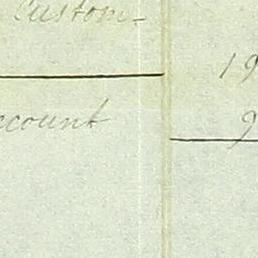 Custom-
19
ccount
9